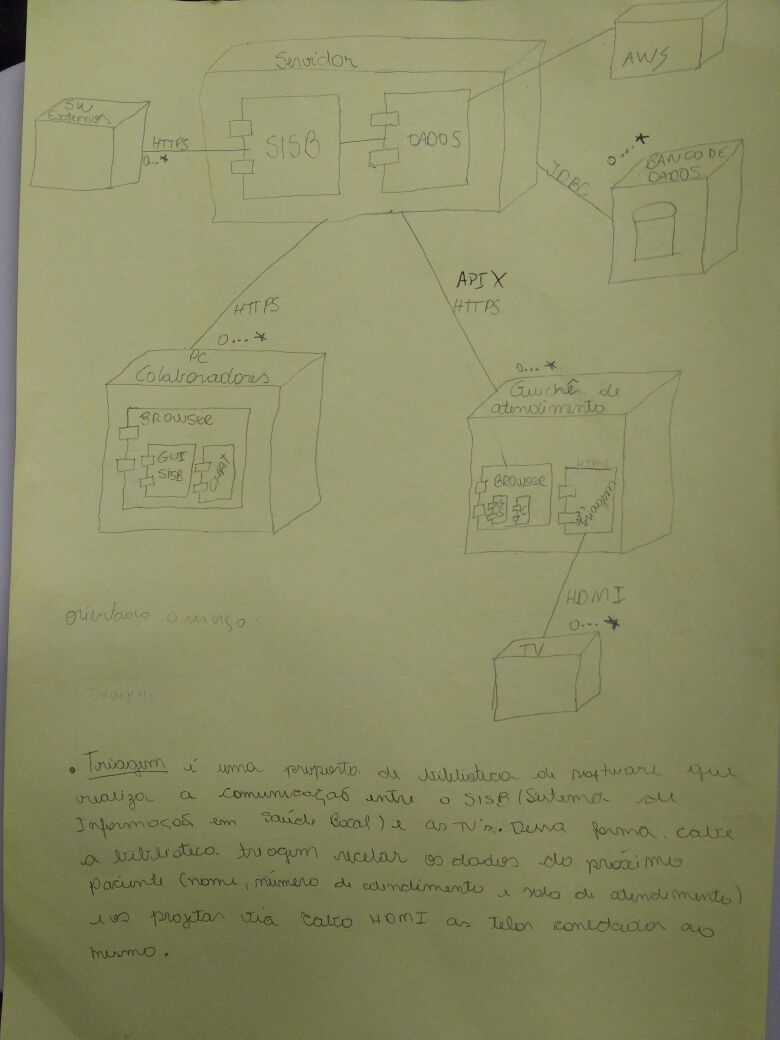 Servidor
AWS
SW
Externos
HTTPS
0..*
SISB
DADOS
JDBC
0...*
BANCO DE
DADOS
HTTPS
0...*
API X
HTTPS
0...*
PC
Colaboradores
BROWSER
GUI
SISB
CHAT
Guichê de
atendimento
BROWSER
G
S
C
HTML
HDMI
0...*
TV
orientado a serviço.
Triagem
• Triagem é uma proposta de biblioteca de software que
realiza a comunicação entre o SISB (Sistema de
Informação em Saúde Bucal) e as TV's. Dessa forma, cabe
a biblioteca triagem receber os dados do próximo
paciente (nome, número de atendimento e sala de atendimento)
e os projetar via cabo HDMI as telas conectadas ao
mesmo.